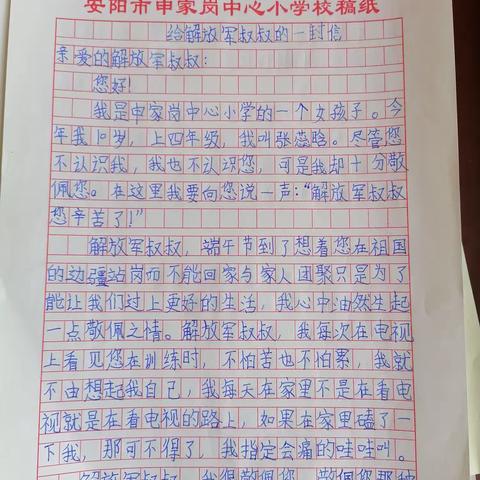 安阳市申家岗中心小学校稿纸
给解放军叔叔的一封信
亲爱的解放军叔叔：
您好！
我是申家岗中心小学的一个女孩子。今
年我10岁，上四年级，我叫张蕊晗。尽管您
不认识我，我也不认识您，可是我却十分敬
佩您。在这里我要向您说一声：“解放军叔叔
您辛苦了！”
解放军叔叔，端午节到了想着您在祖国
的边疆站岗而不能回家与家人团聚只是为了
能让我们过上更好的生活，我心中油然生起
一点敬佩之情。解放军叔叔，我每次在电视
上看见您在训练时，不怕苦也不怕累，我就
不由想起我自己，我每天在家里不是在看电
视就是在看电视的路上，如果在家里磕了一
下我，那可不得了，我指定会痛的哇哇叫。
解放军叔叔，我很敬佩您，敬佩您那种